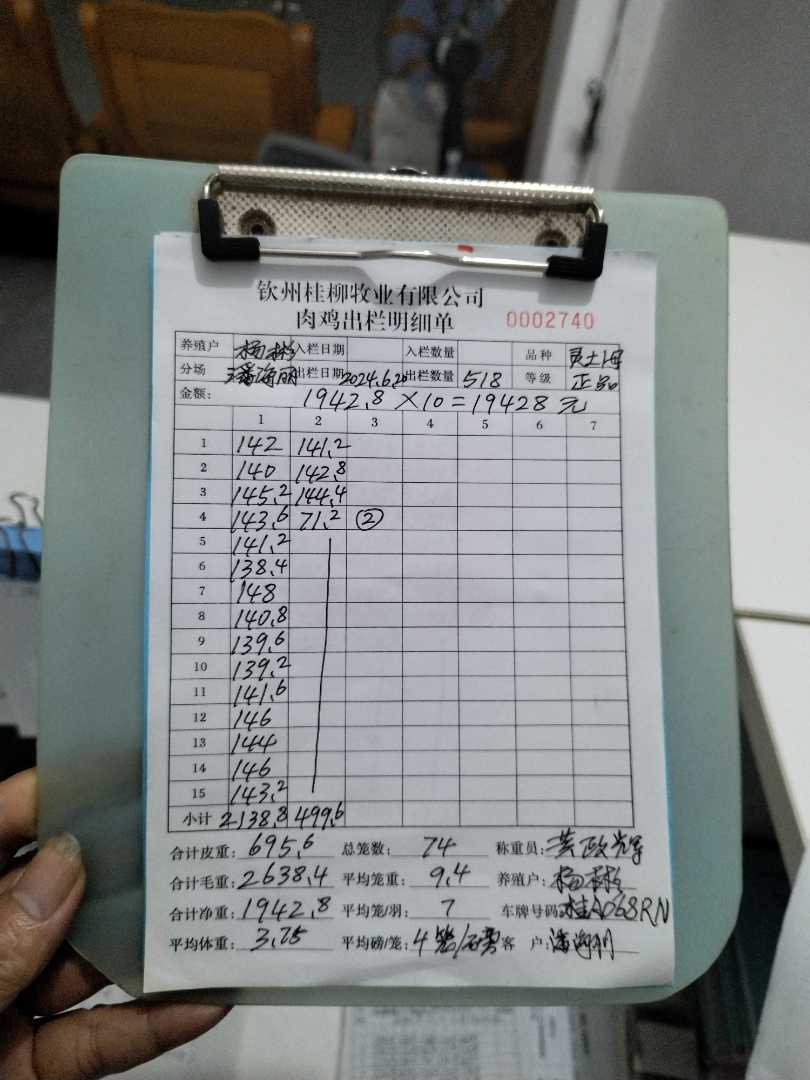 钦州桂柳牧业有限公司
肉鸡出栏明细单 0002740
养殖户 杨彬 入栏日期 入栏数量 品种 灵土2号
分场 潘海丽 出栏日期 2024.6.20 出栏数量 518 等级 正品
金额: 1942.8×10=19428元
1 2 3 4 5 6 7
1 142 141.2
2 140 142.8
3 145.2 144.4
4 143.6 71.2 ②
5 141.2
6 138.4
7 148
8 140.8
9 139.6
10 139.2
11 141.6
12 146
13 144
14 146
15 143.2
小计 2138.8 499.6
合计皮重: 695.6 总笼数: 74 称重员: 黄政
合计毛重: 2638.4 平均笼重: 9.4 养殖户: 杨彬
合计净重: 1942.8 平均笼/羽: 7 车牌号码: 桂A068RN
平均体重: 3.75 平均磅/笼: 4笼/磅 客户: 潘海